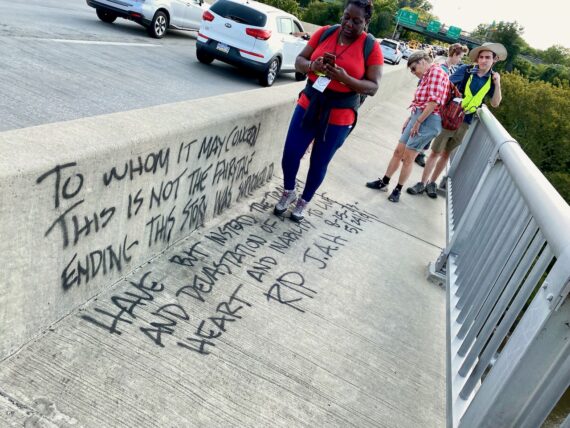 TO WHOM IT MAY CONCERN
THIS IS NOT THE FAIRYTALE
ENDING THIS STORY WAS SUPPOSED TO
HAVE BUT INSTEAD THE
AND DEVASTATION OF A
HEART AND INABILITY TO LIVE
RIP JAH